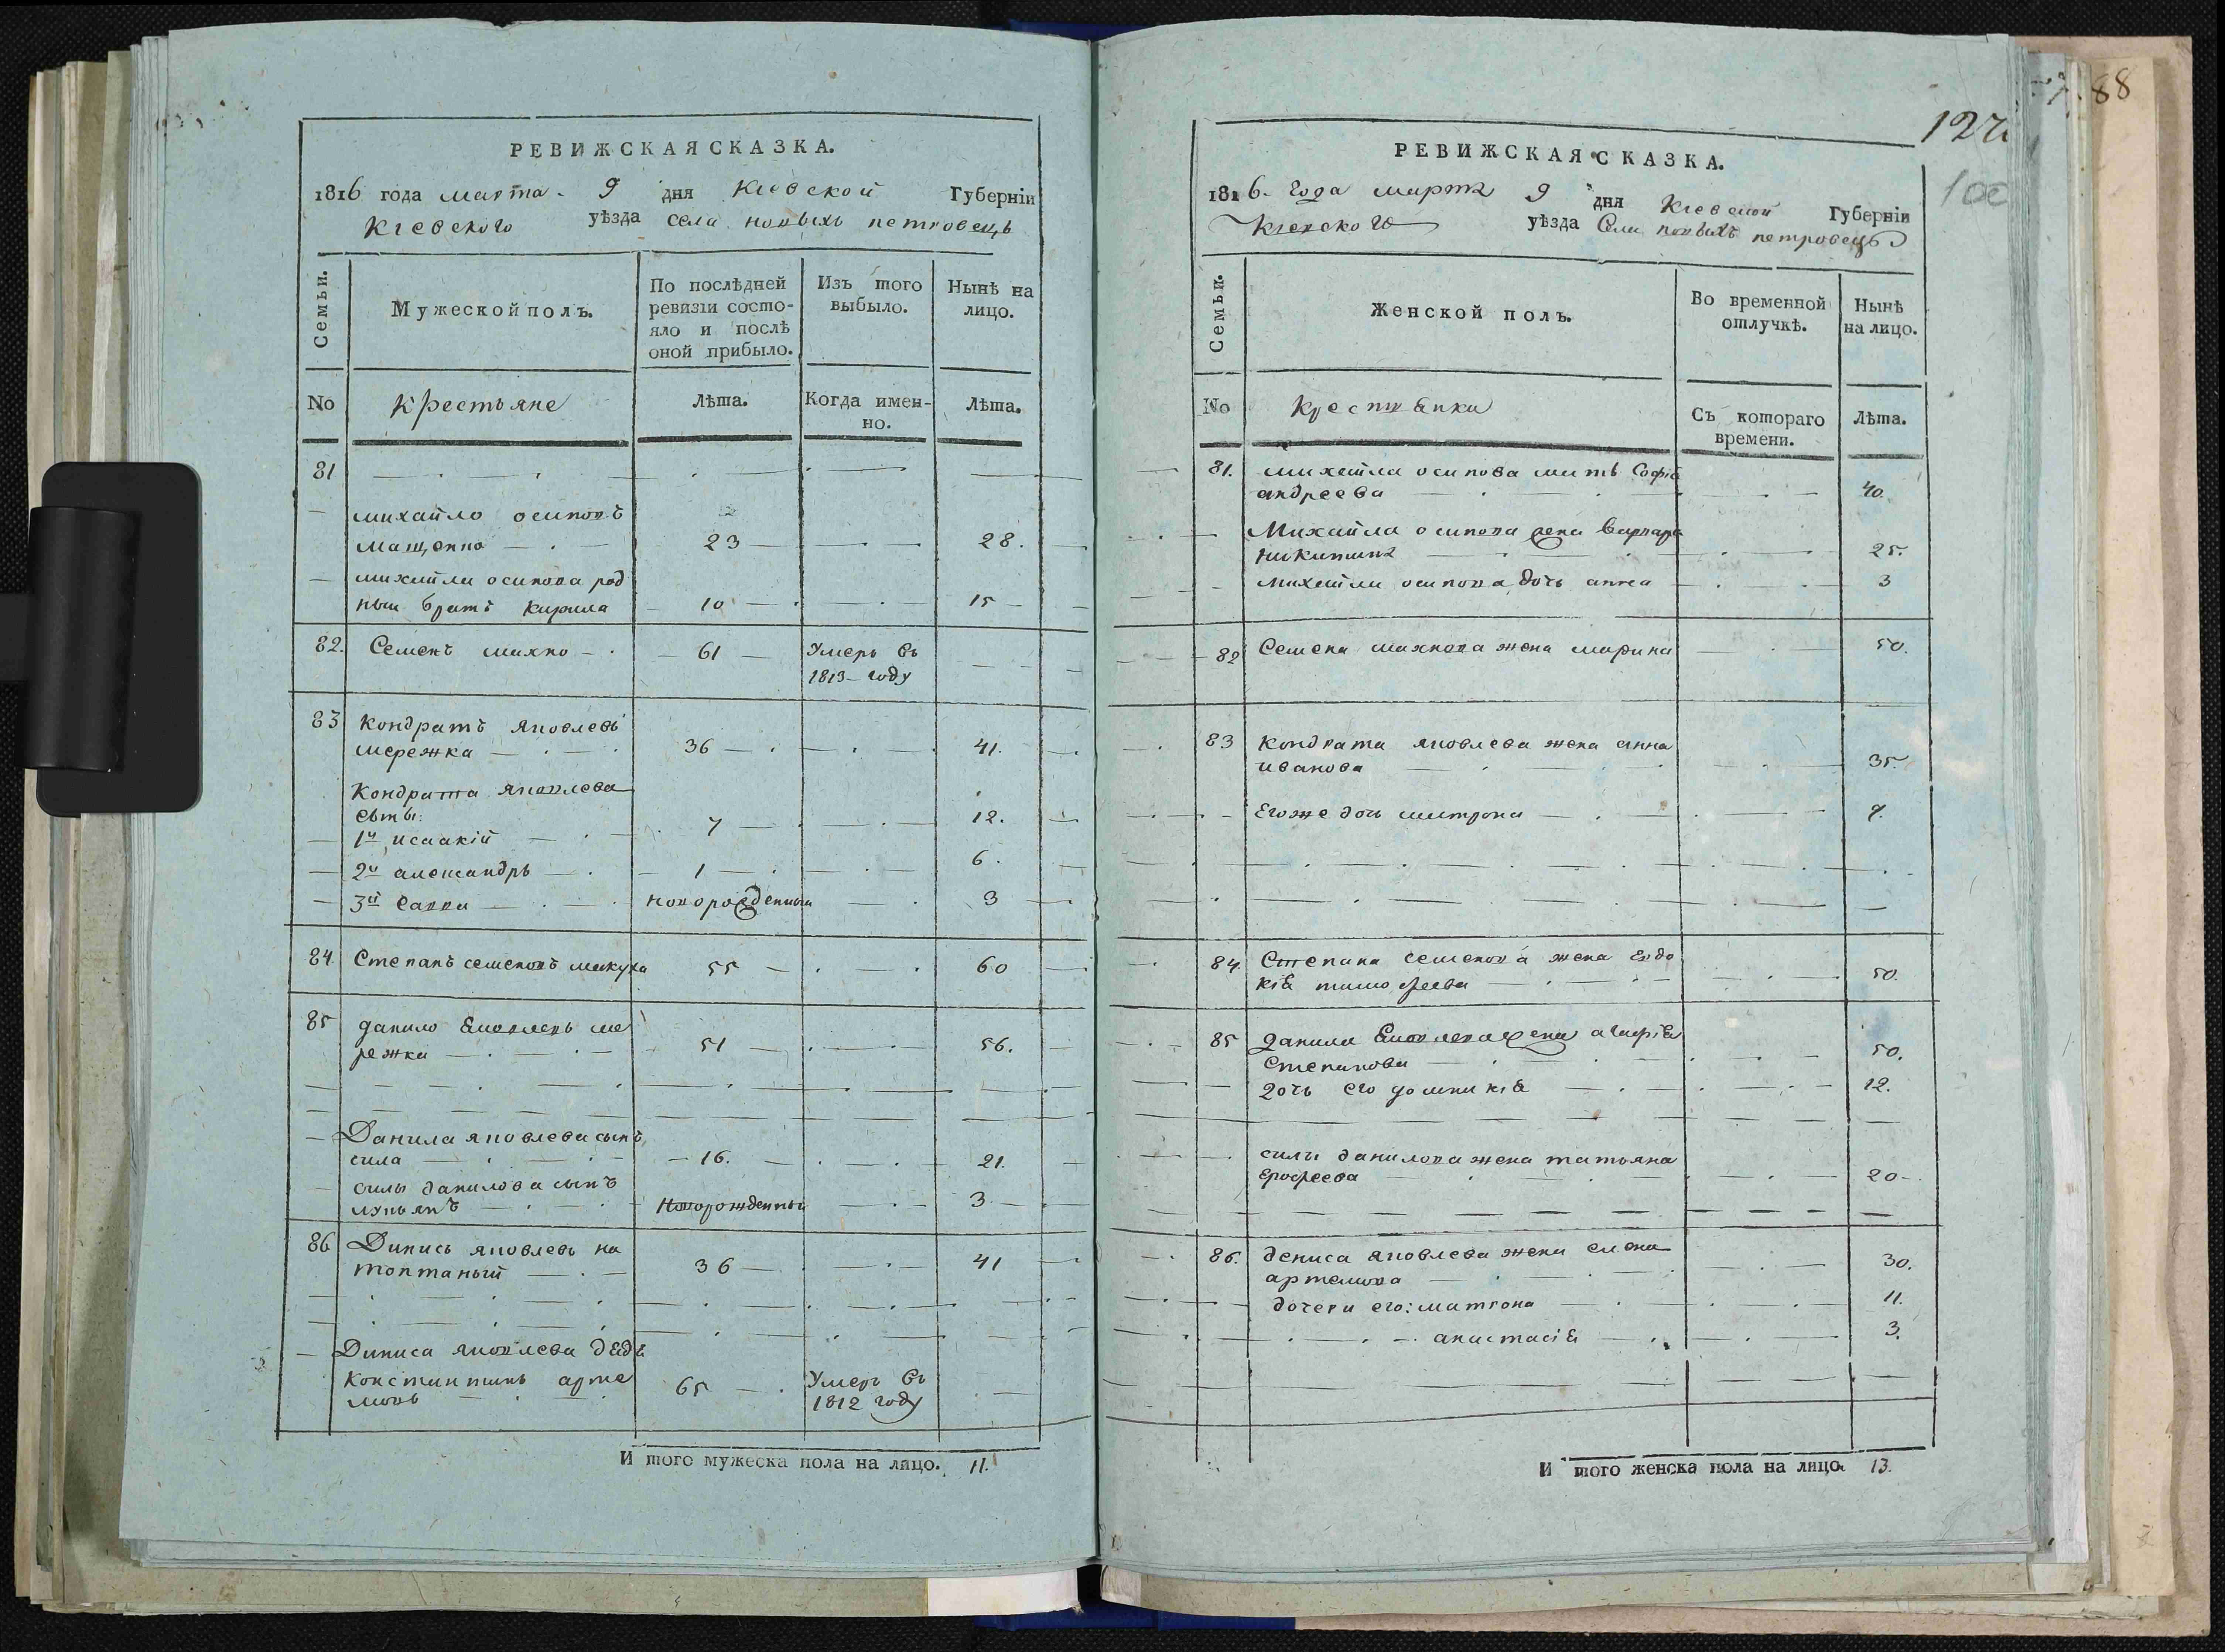 РЕВИЖСКАЯ СКАЗКА.
1816 года марта 9 дня Кіевской Губерніи
Кіевского уѣзда села новыхъ петровецъ
Семьи.
Мужеской полъ.
По послѣдней
ревизіи состо-
яло и послѣ
оной прибыло.
Изъ того
выбыло.
Нынѣ на
лицо.
No
Крестьяне
Лѣта.
Когда имен-
но.
Лѣта.
81
михайло осиповъ
мащенко 23 28.
михайла осипова род
ный братъ кирила 10 15
82. Семенъ махно 61 Умеръ въ
1813 году
83 кондратъ яковлевъ
мережка 36 41.
Кондрата яковлева
сыны:
1й исаакій 7 12.
2й александръ 1 6.
3й савва новорожденный 3
84 Степанъ семеновъ макуха 55 60
85 данило яковлевъ ме
режка 51 56.
Данила яковлева сынъ
сила 16. 21.
силы данилова сынъ
лукьянъ новорожденный 3
86 Динисъ яковлевъ на
топтаный 36 41
Диниса яковлева дядя
константинъ арте
мовъ 65 Умеръ въ
1812 году
И того мужеска пола на лицо. 11.
88
100
РЕВИЖСКАЯ СКАЗКА.
1816 года марта 9 дня Кіевской Губерніи
Кіевского уѣзда Села новыхъ петровецъ
Семьи.
Женской полъ.
Во временной
отлучкѣ.
Нынѣ
на лицо.
No
Крестьянки
Съ котораго
времени.
Лѣта.
81. михайла осипова мать Софія
андреева 40.
Михайла осипова жена варвара
никитина 25.
михайла осипова дочь анна 3
82 Семена махнова жена марина 50.
83 кондрата яковлева жена анна
иванова 35.
Его же дочь матрона 7.
84. Степана семенова жена Евдо
кія тимофеева 50.
85 данила яковлева жена агафія
Степанова 50.
дочь его домникія 12.
силы данилова жена татьяна
ерофеева 20
86. дениса яковлева жена елена
артемова 30.
дочери его: матрона 11.
анастасія 3.
И того женска пола на лицо 13.